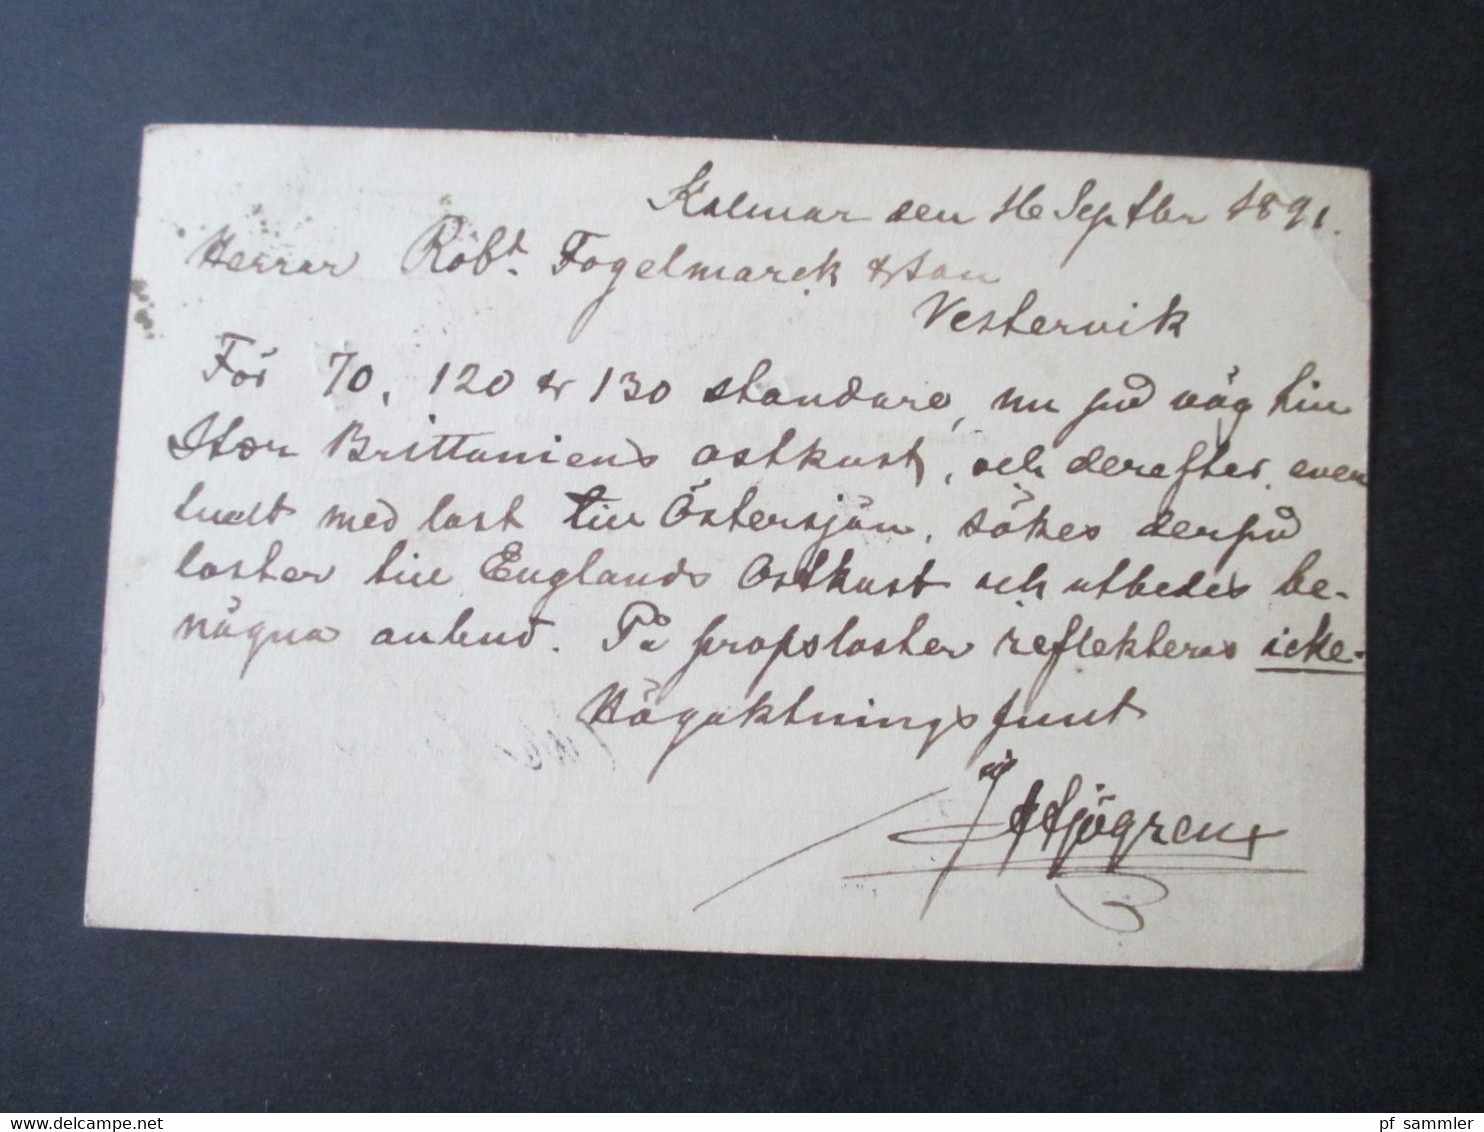 Kalmar den 16 Septbr 1891.
Herrar Robt. Fogelmarck & Son
Vestervik
För 70, 120 & 130 standare, nu på väg till
Stor Brittaniens ostkust, och derefter, even
tuelt med last till Östersjön, sökes derpå
laster till Englands Ostkust och utbedes be-
nägna anbud. På propslaster reflekteras icke.
Högaktningsfullt
Sjögren
pf_sammler
www.delcampe.net